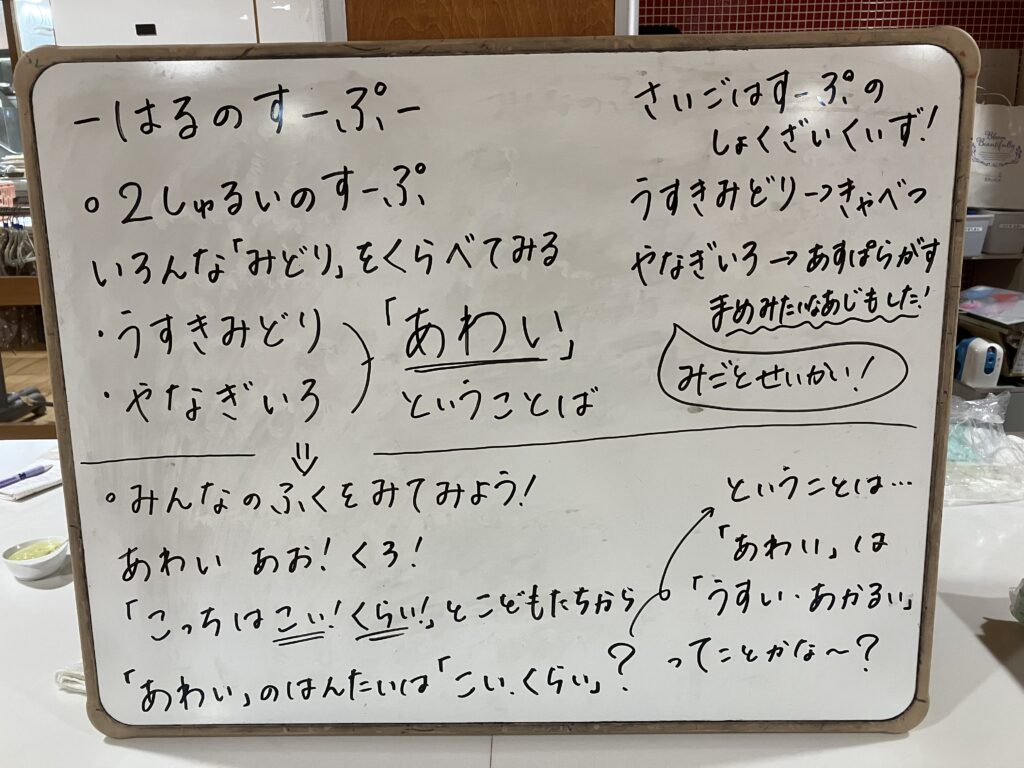 ーはるのすーぷー
○2しゅるいのすーぷ
いろんな「みどり」をくらべてみる
・うすきみどり
・やなぎいろ
「あわい」
ということば
さいごはすーぷの
しょくざいくいず!
うすきみどり→きゃべつ
やなぎいろ→あすぱらがす
まめみたいなあじもした!
みごとせいかい!
⇓
○みんなのふくをみてみよう!
あわい あお!くろ!
「こっちはこい!くらい!」とこどもたちから
「あわい」のはんたいは「こい.くらい」?
ということは…
「あわい」は
「うすい・あかるい」
ってことかな〜?
Bloom
Beautifully